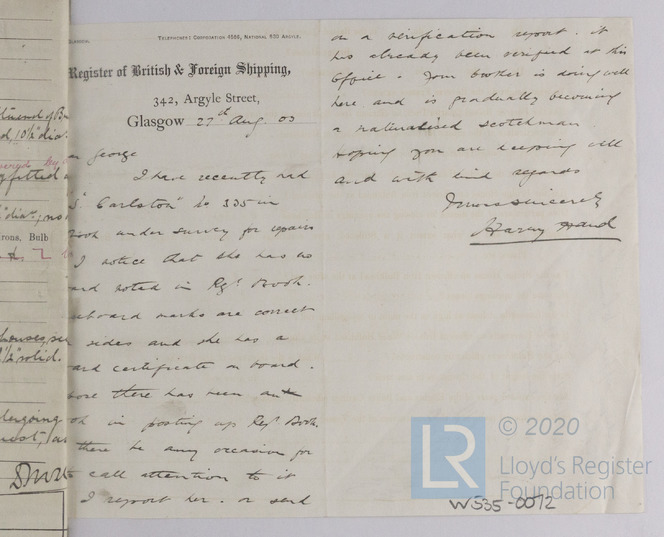 GLASGOW.
TELEPHONES: CORPORATION 4586, NATIONAL 800 ARGYLE.
Register of British & Foreign Shipping,
342, Argyle Street,
Glasgow 27th Aug. 03
George
I have recently had
S. "Carlston" No 335 in
Book under survey for repairs
I notice that she has no
ard noted in Regr Book.
eeboard marks are correct
sides and she has a
ard certificate on board.
pose there has been an
in posting up Regr Book.
there be any occasion for
to call attention to it
I report her. or send
on a verification report. it
has already been verified at this
Office. Your brother is doing well
here and is gradually becoming
a naturalised Scotchman
Hoping you are keeping well
and with kind regards
Yours sincerely
Harry Hand
d, 10½" dia.
fitted
dia;
rons, Bulb
½" solid.
dergoing
LR
© 2020
Lloyd's Register
Foundation
W535-0072